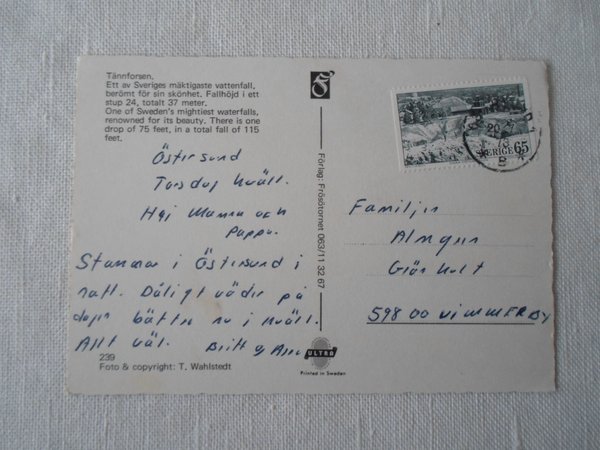 Tännforsen.
Ett av Sveriges mäktigaste vattenfall,
berömt för sin skönhet. Fallhöjd i ett
stup 24, totalt 37 meter.
One of Sweden's mightiest waterfalls,
renowned for its beauty. There is one
drop of 75 feet, in a total fall of 115
feet.
Östersund
Torsdag kväll.
Hej Mamma och
Pappa.
Stannar i Östersund i
natt. Dåligt väder på
dagen bättre nu i kväll.
Allt väl. Britt o
239
Foto & copyright: T. Wahlstedt
Förlag: Frösötornet 063/11 32 67
ULTRA
Printed in Sweden
SVERIGE 65
Familjen
Almgren
598 00 VIMMERBY